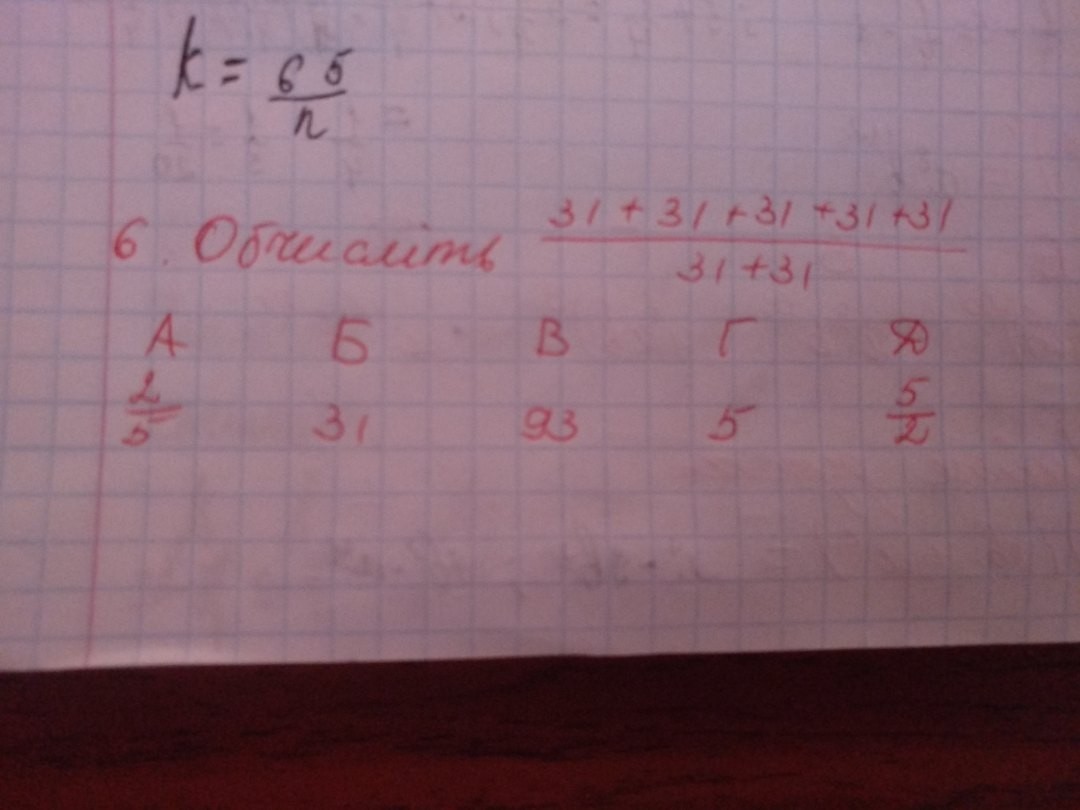 k = 65/n
6. Обчисліть (31 + 31 + 31 + 31 + 31)/(31 + 31)
А Б В Г Д
2/5 31 93 5 5/2